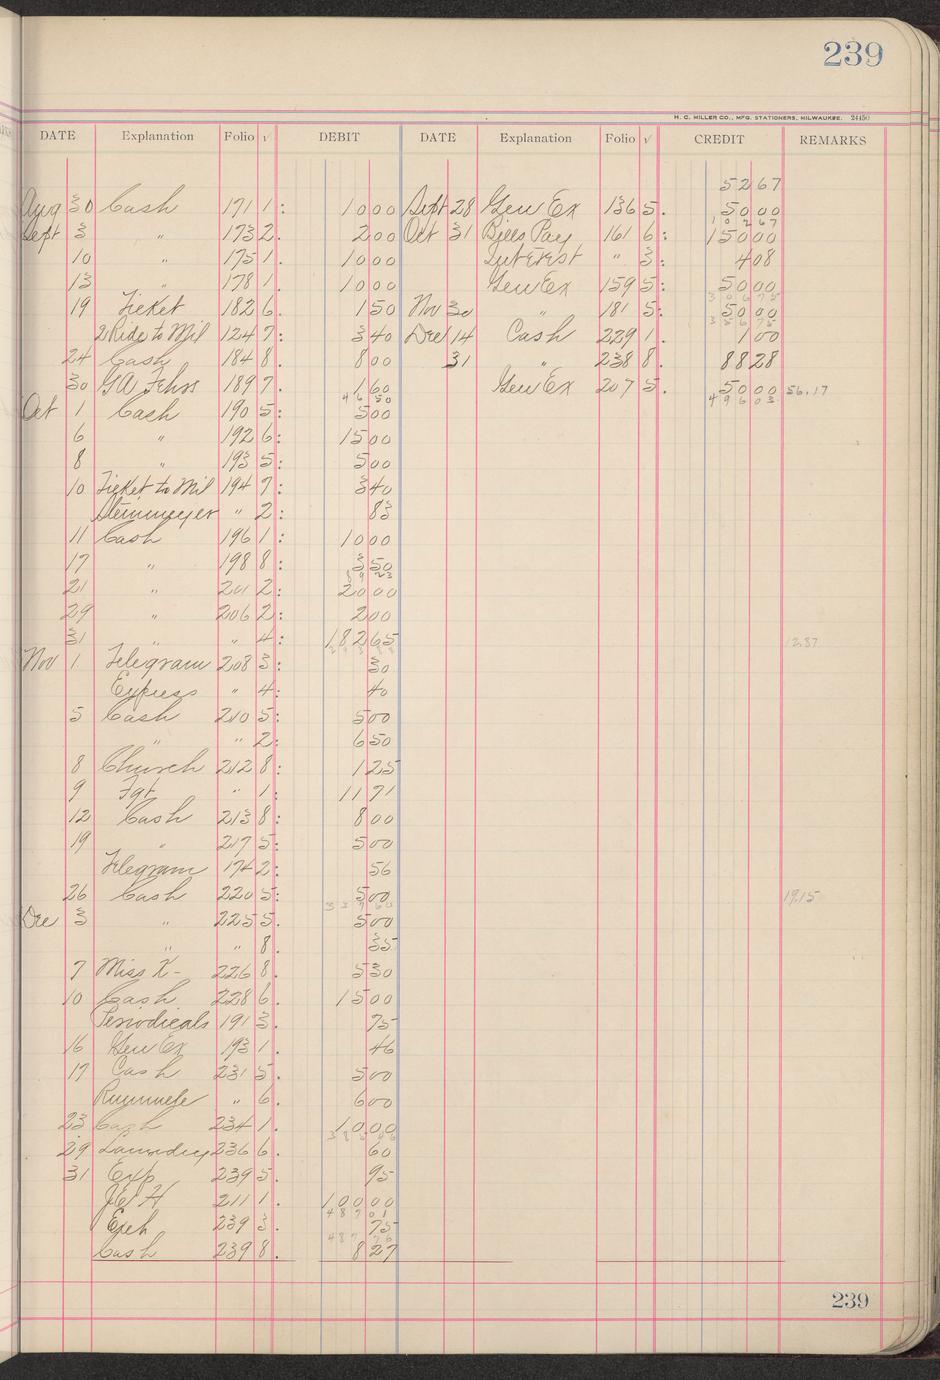 239
H. C. MILLER CO., MFG. STATIONERS, MILWAUKEE. 24450
DATE Explanation Folio √ DEBIT DATE Explanation Folio √ CREDIT REMARKS
5267
Aug 30 Cash 171 1: 1000 Sept 28 Gen Ex 136 5. 5000
10267
Sept 3 " 173 2. 200 Oct 31 Bills Pay 161 6: 15000
10 " 175 1. 1000 Interest " 3: 408
13 " 178 1. 1000 Gen Ex 159 5: 5000
30675
19 Ticket 182 6. 150 Nov 30 " 181 5: 5000
35675
2 Ride to Mil 124 7: 340 Dec 14 Cash 229 1. 100
24 Cash 184 8. 800 31 " 238 8. 8828
30 GA Fehrs 189 7. 160 Gen Ex 207 5. 5000 56.17
4650 49603
Oct 1 Cash 190 5: 500
6 " 192 6: 1500
8 " 193 5: 500
10 Ticket to Mil 194 7: 340
Steinmeyer " 2: 83
11 Cash 196 1: 1000
17 " 198 8: 350
8923
21 " 201 2: 2000
29 " 206 2: 200
31 " " 4: 18265 12.37
Nov 1 Telegram 208 3: 30
Express " 4: 40
5 Cash 210 5: 500
" " 2: 650
8 Church 212 8: 125
9 Fgt " 1: 1171
12 Cash 213 8: 800
19 " 217 5: 500
Telegram 174 2: 56
26 Cash 220 5: 500 19.15
33760
Dec 3 " 225 5. 500
" " 8. 35
7 Miss K- 226 8. 530
10 Cash 228 6. 1500
Periodicals 191 3. 75
16 Gen Ex 193 1. 46
17 Cash 231 5. 500
" 6. 600
23 Cash 234 1. 1000
29 Laundry 236 6. 60
31 Exp 239 5. 95
211 1. 10000
48701
Exch 239 3. 75
48776
Cash 239 8. 827
239